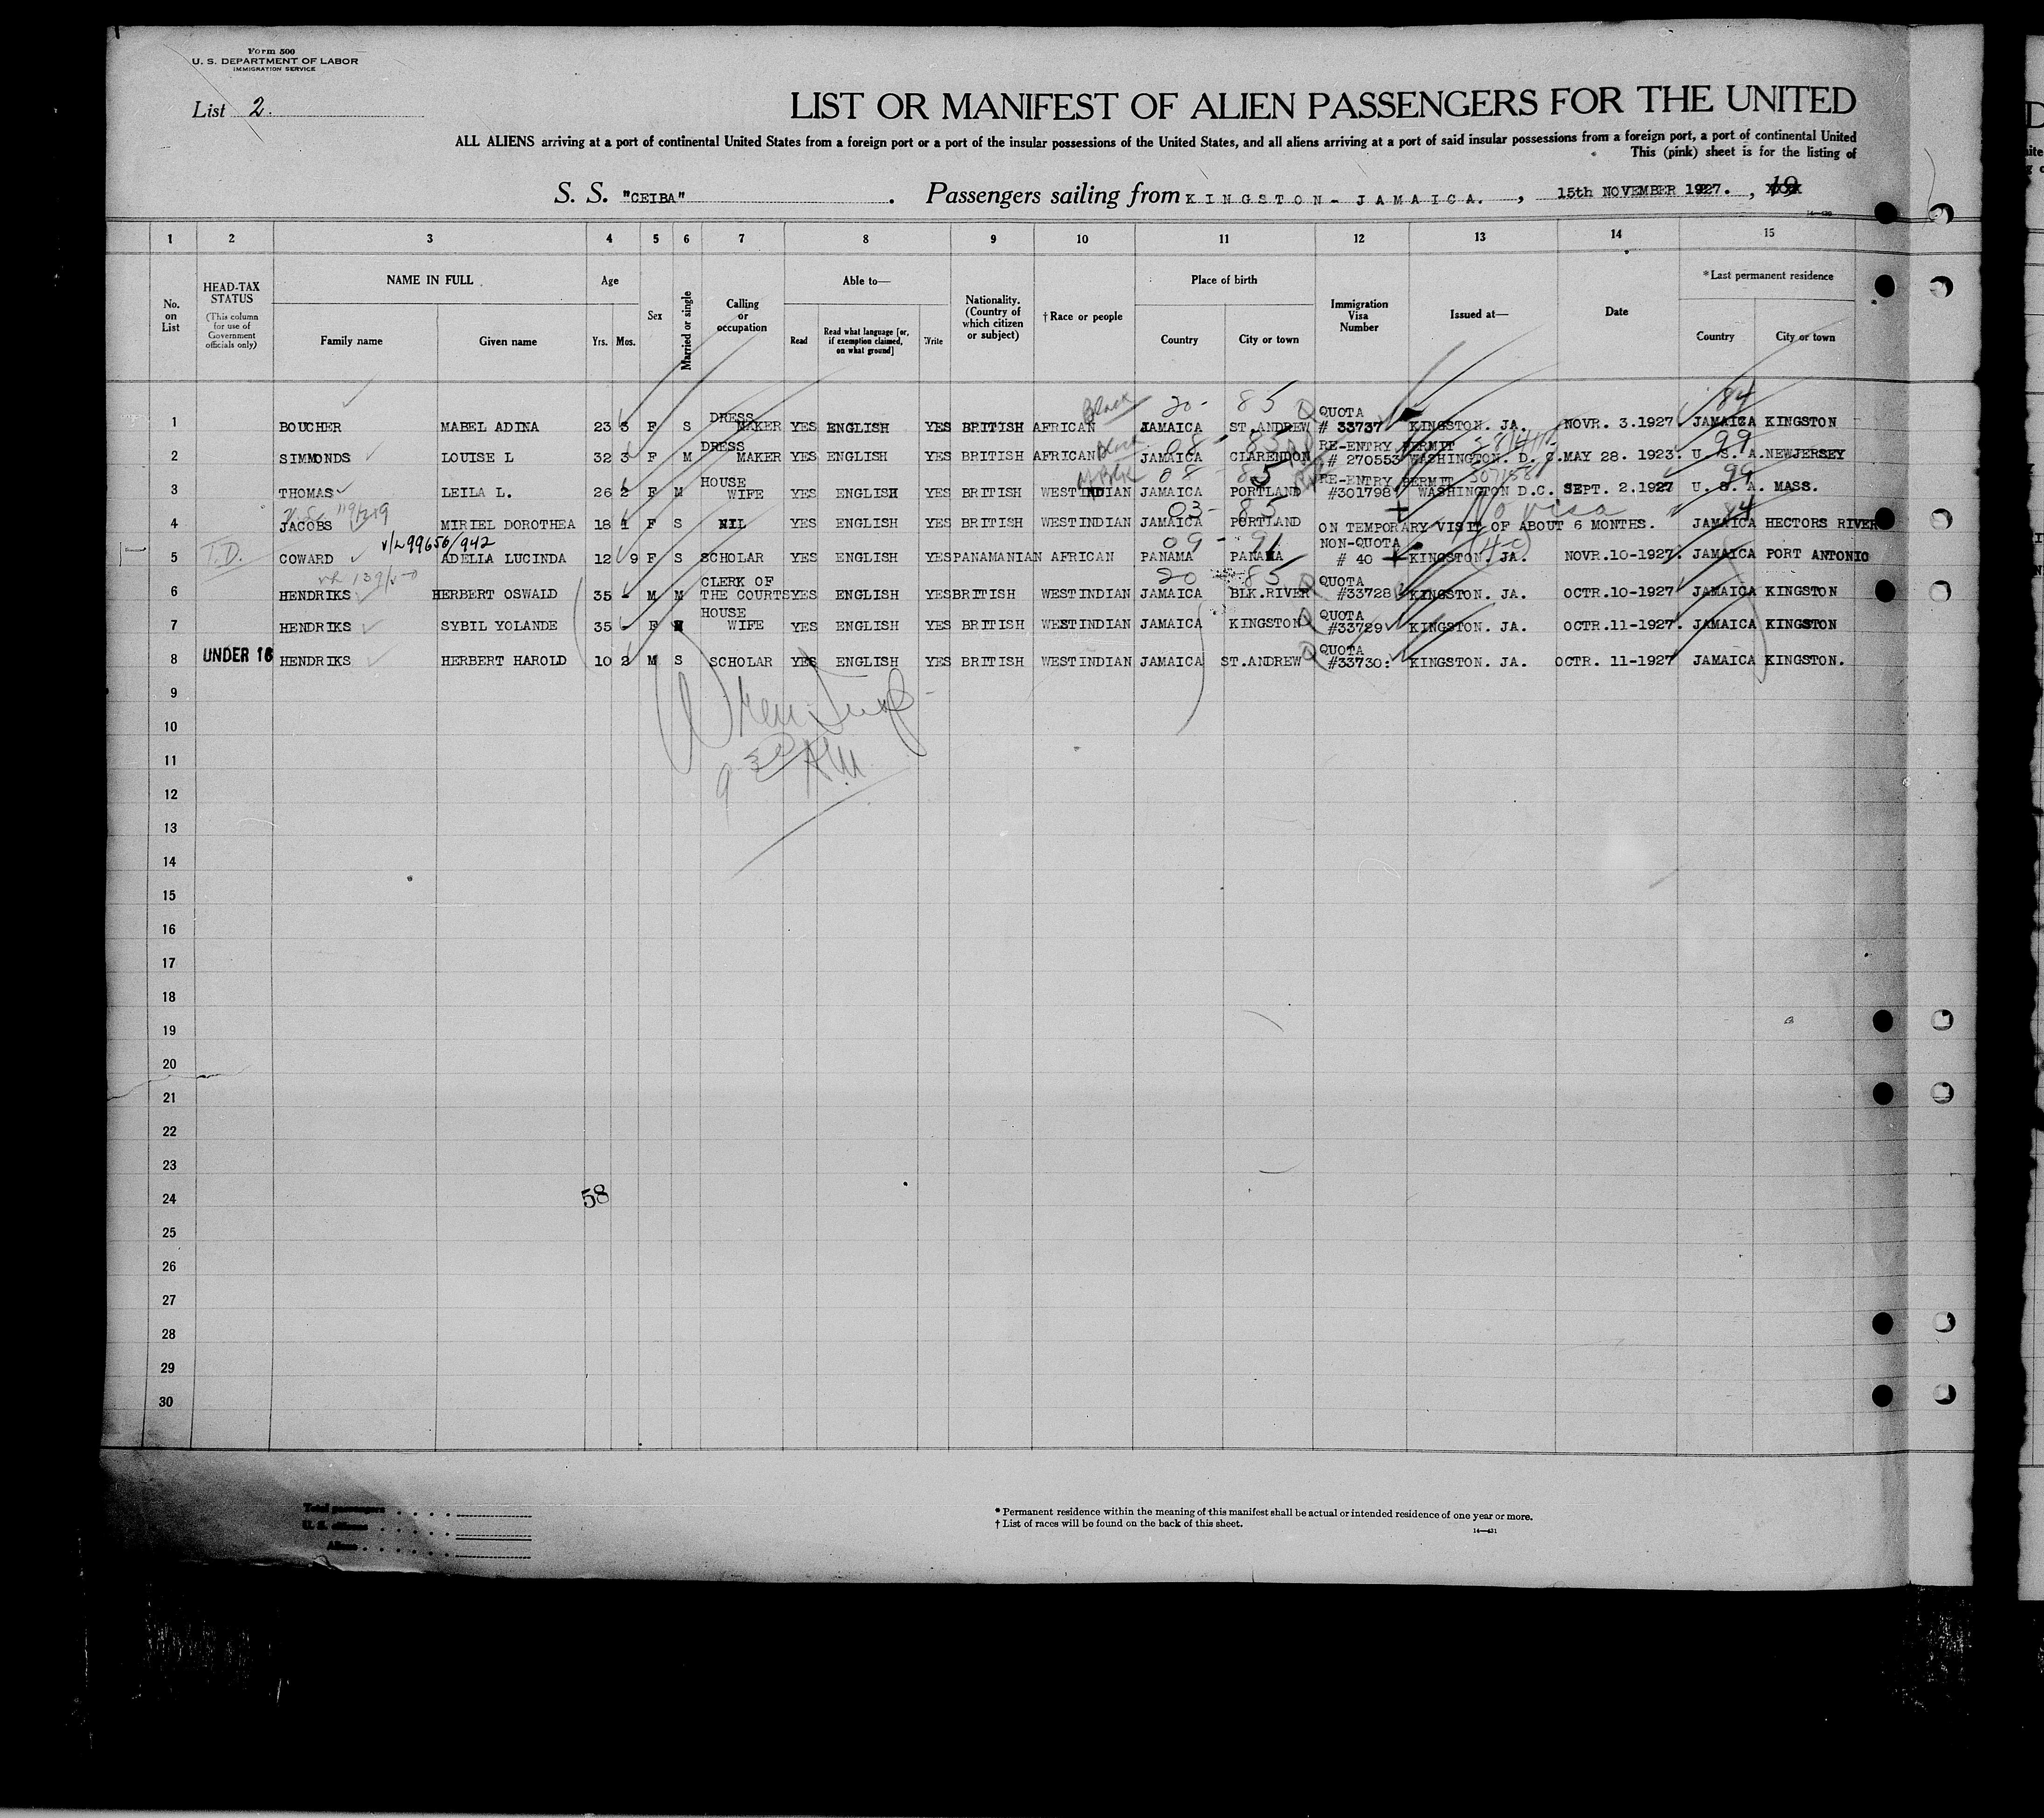 Form 500
U. S. DEPARTMENT OF LABOR
IMMIGRATION SERVICE
List 2.
LIST OR MANIFEST OF ALIEN PASSENGERS FOR THE UNITED
ALL ALIENS arriving at a port of continental United States from a foreign port or a port of the insular possessions of the United States, and all aliens arriving at a port of said insular possessions from a foreign port, a port of continental United
This (pink) sheet is for the listing of
S. S. "CEIBA" . Passengers sailing from KINGSTON - JAMAICA. , 15th NOVEMBER 1927. , 19
1 2 3 4 5 6 7 8 9 10 11 12 13 14 15
No. on List
HEAD-TAX STATUS
(This column for use of Government officials only)
NAME IN FULL
Family name Given name
Age
Yrs. Mos.
Sex
Married or single
Calling or occupation
Able to—
Read
Read what language [or, if exemption claimed, on what ground]
Write
Nationality. (Country of which citizen or subject)
† Race or people
Place of birth
Country City or town
Immigration Visa Number
Issued at—
Date
* Last permanent residence
Country City or town
1 BOUCHER MABEL ADINA 23 3 F S DRESS MAKER YES ENGLISH YES BRITISH AFRICAN Black JAMAICA 20- ST.ANDREW 85 QUOTA # 33737 KINGSTON. JA. NOVR. 3.1927 JAMAICA 84 KINGSTON
2 SIMMONDS LOUISE L 32 3 F M DRESS MAKER YES ENGLISH YES BRITISH AFRICAN Black JAMAICA 08- CLARENDON 85 RE-ENTRY PERMIT # 270553 WASHINGTON. D. C. MAY 28. 1923. U. S. A. 99 NEWJERSEY
3 THOMAS LEILA L. 26 2 F M HOUSE WIFE YES ENGLISH YES BRITISH WESTINDIAN JAMAICA 08- PORTLAND 85 RE-ENTRY PERMIT #301798 WASHINGTON D.C. SEPT. 2.1927 U. S. A. 99 MASS.
4 JACOBS MIRIEL DOROTHEA 18 1 F S NIL YES ENGLISH YES BRITISH WESTINDIAN JAMAICA 03- PORTLAND 85 No visa ON TEMPORARY VISIT OF ABOUT 6 MONTHS. JAMAICA 84 HECTORS RIVER
T.D. 5 COWARD ADELIA LUCINDA 12 9 F S SCHOLAR YES ENGLISH YES PANAMANIAN AFRICAN PANAMA 09- PANAMA 91 NON-QUOTA # 40 KINGSTON. JA. NOVR.10-1927. JAMAICA PORT ANTONIO
6 HENDRIKS HERBERT OSWALD 35 - M M CLERK OF THE COURTS YES ENGLISH YES BRITISH WESTINDIAN JAMAICA 20 BLK.RIVER 85 QUOTA #33728 KINGSTON. JA. OCTR.10-1927 JAMAICA KINGSTON
7 HENDRIKS SYBIL YOLANDE 35 - F M HOUSE WIFE YES ENGLISH YES BRITISH WESTINDIAN JAMAICA KINGSTON QUOTA #33729 KINGSTON. JA. OCTR.11-1927. JAMAICA KINGSTON
8 UNDER 16 HENDRIKS HERBERT HAROLD 10 2 M S SCHOLAR YES ENGLISH YES BRITISH WESTINDIAN JAMAICA ST.ANDREW QUOTA #33730: KINGSTON. JA. OCTR. 11-1927 JAMAICA KINGSTON.
9
10
11
12
13
14
15
16
17
18
19
20
21
22
23
24 58
25
26
27
28
29
30
Total passengers
U. S. citizens
Aliens
* Permanent residence within the meaning of this manifest shall be actual or intended residence of one year or more.
† List of races will be found on the back of this sheet.
14—431